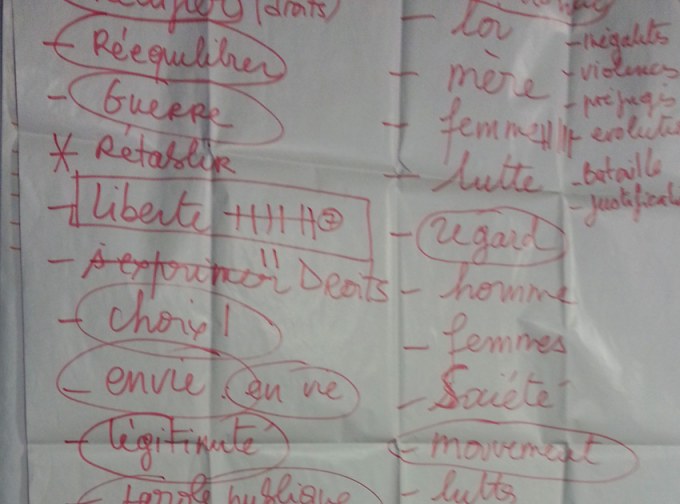 (droits)
- Rééquilibrer
- Guerre
* Rétablir
- liberté
- s'exprimer Droits
- choix!
- envie. en vie
- légitimité
- parole publique
- loi
- mère
- femme
- lutte
- regard
- homme
- femmes
- Société
- mouvement
- lutts
- inégalités
- violences
- préjugés
- bataille